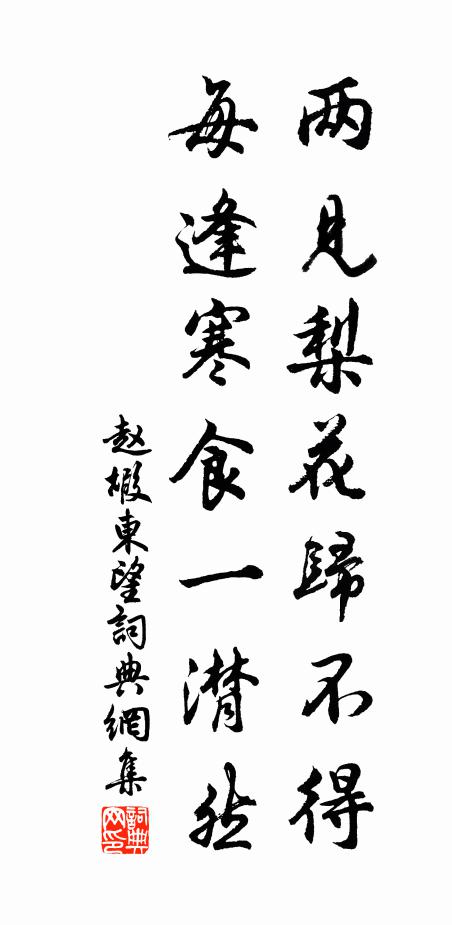 两见梨花歸不得
每逢寒食一潸然
赵嘏東望詞典網集
詞典网印